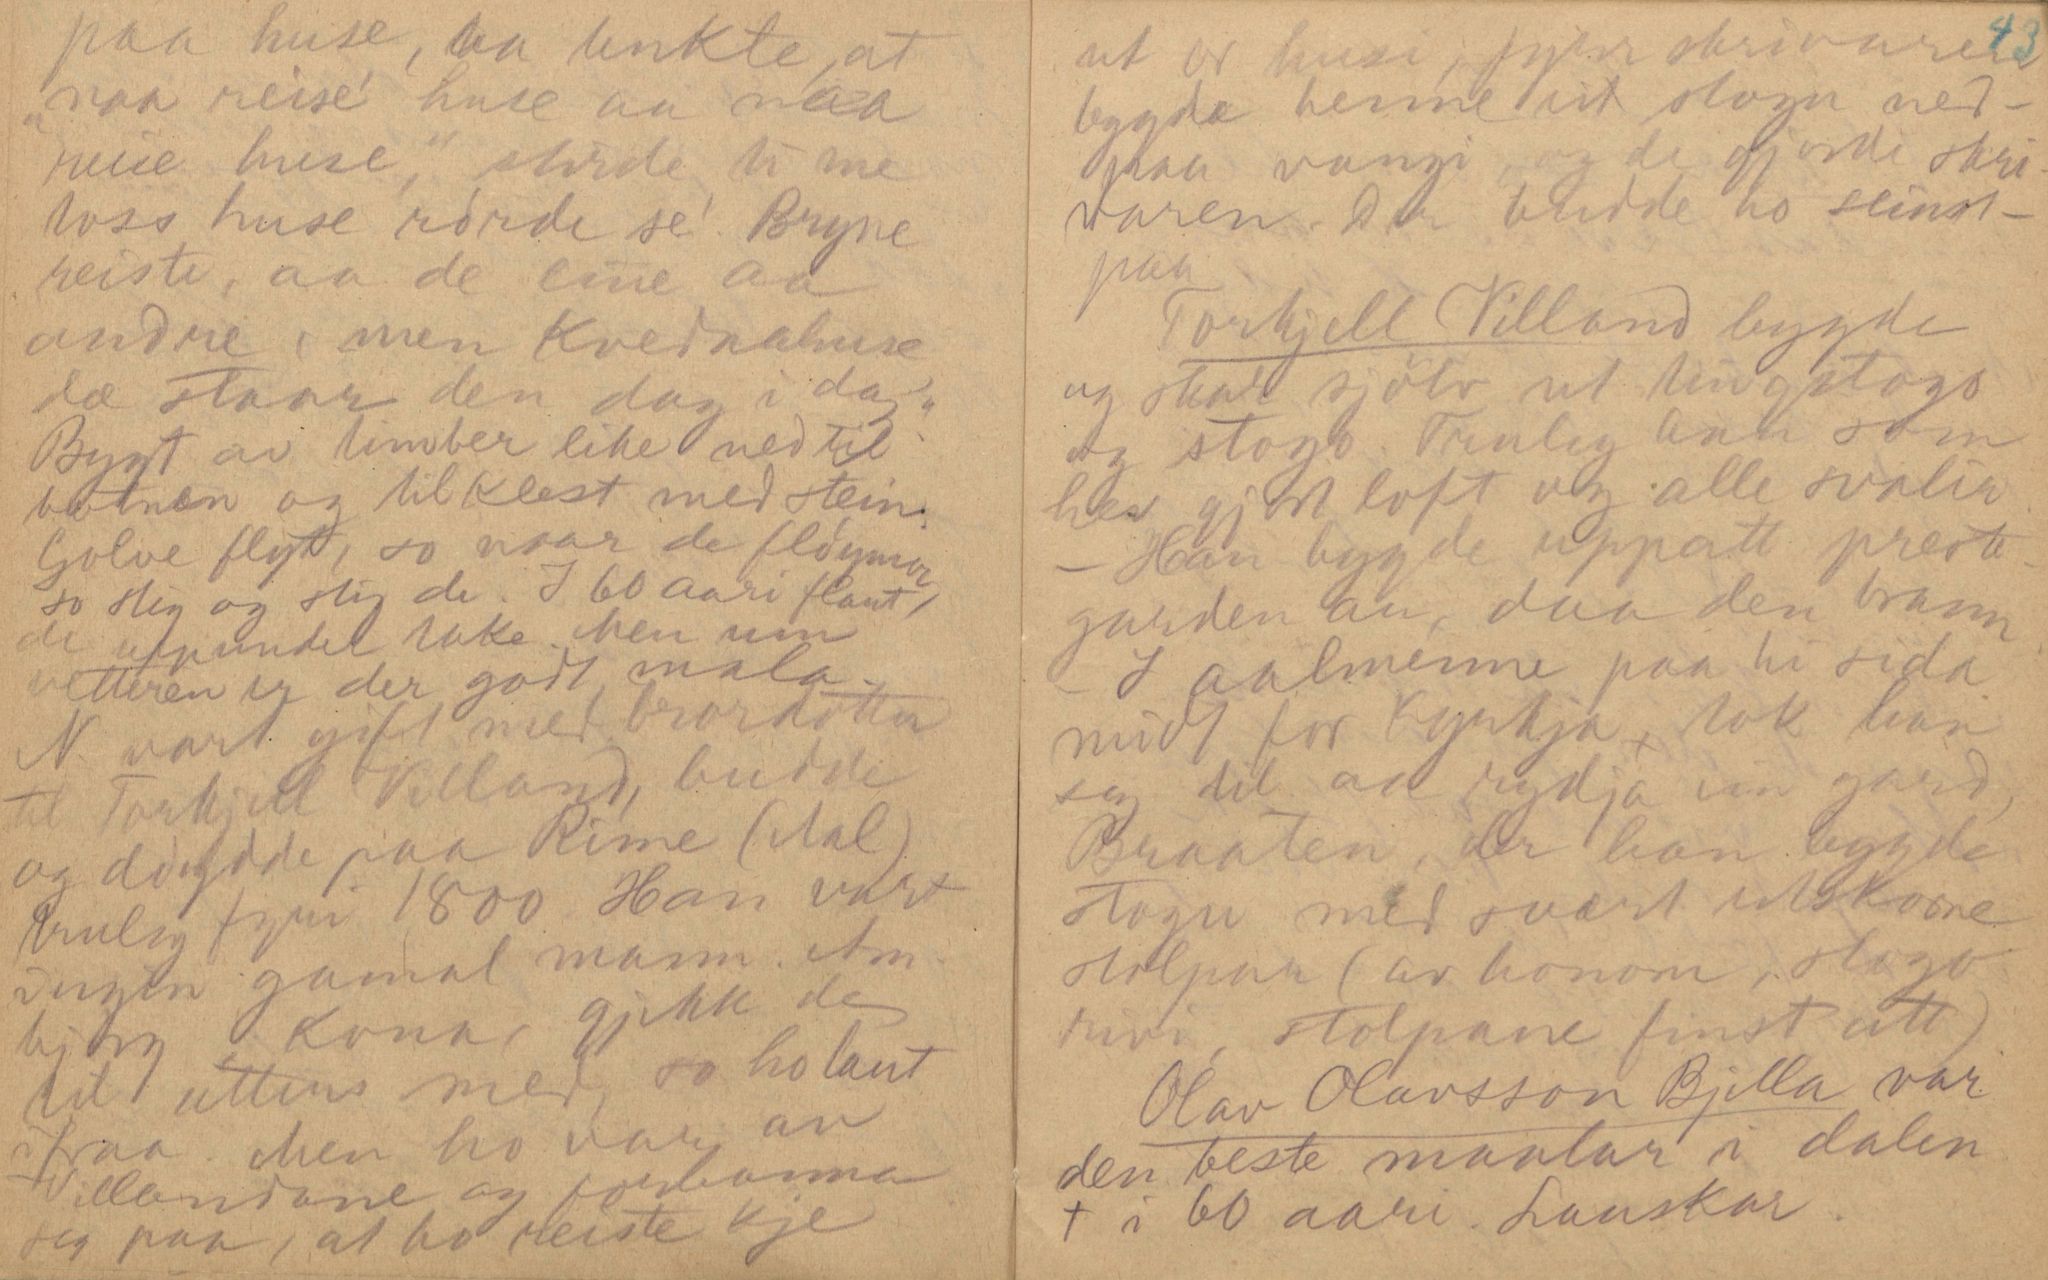 paa huse, aa tenkte, at
"naa reise' huse aa naa
reise huse," skrde ti me
toss huse rørde se'. Bryne
reiste, aa de eine aa
andre, men Kvednahuse
dæ staar den dag i dag."
Bygt av timber like ned til
botnen og tilklest med stein.
Golve flyt, so naar de fløymer
so stig og stig de. I 60 aari flaut
de uppundel take. Men um
vetteren er der godt mala.
N. vart gift med brordotter
til Torkjell Villand, budde
og døydde paa Rime (Aal)
truleg fyrr 1800. Han vart
ingin gamal mann. Am-
bjørg Kona, gjekk de
til uttens med, so ho laut
ifraa. Men ho var av
Villandane og forbanna
seg paa, at ho reiste kje
43
ut or husi, fyrr skrivaren
bygde henne ut stogu ned-
paa vangi, og de gjorde skri-
varen. Der budde ho seinst-
paa.
Torkjell Villand bygde
og skar sjölv ut tingstogo
og stogo. Truleg han som
hev gjort loft og alle svalir
– Han bygde uppatt preste-
garden au, daa den brann
– I aalmenne paa hi sida
midt for Kyrkja, tok han
seg til aa rydja ein gard,
Braaten, der han bygde
stogu med svært utskorne
stolpar (av honom, stogo
rivi, stolpane finst att)
Olav Olavsson Bjella var
den beste maalar i dalen
+ i 60 aari. Lauskar.